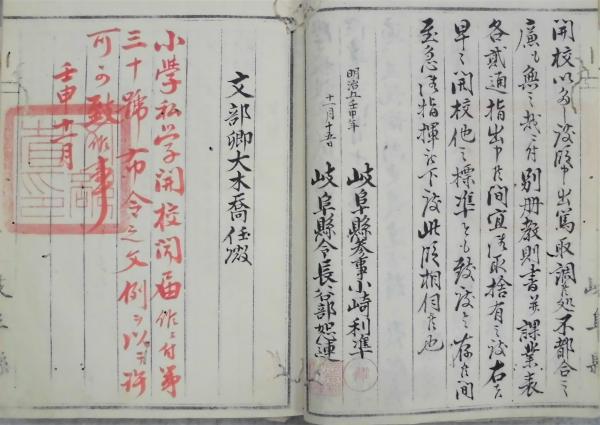 開校以多し談願申出篤取調候処不都合之
廉も無之哉ニ付別冊教則書并課業表
各貳通指出申候間宜御取捨有之度右は
早々開校他之標準とも致度と存候間
至急御指揮被下度此段相伺候也
明治五壬申年
十一月十五日
岐阜縣参事小崎利準
岐阜縣令長谷部恕連
文部卿大木喬任殿
小學私学開校聞届候ニ付第
三十號布令之文例ヲ以テ許
可可致候事
壬申十一月